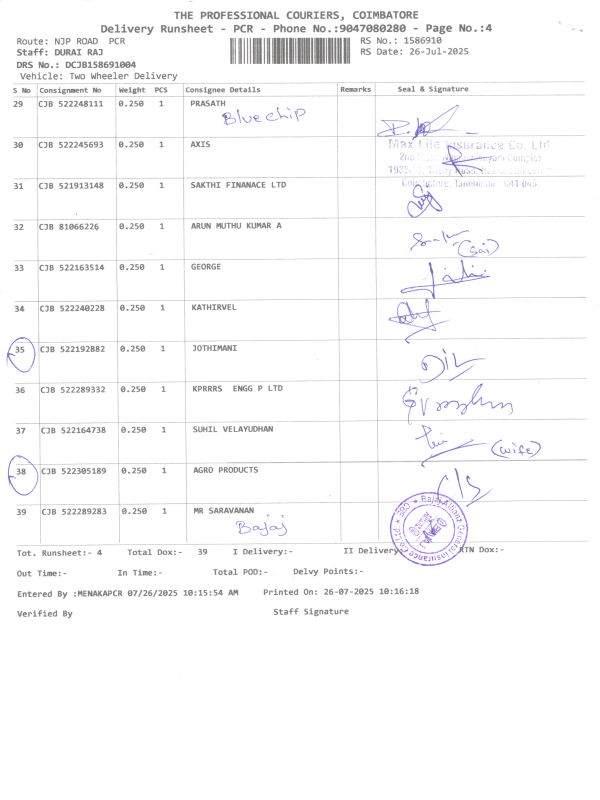 THE PROFESSIONAL COURIERS, COIMBATORE
Delivery Runsheet - PCR - Phone No.:9047080280 - Page No.:4
Route: NJP ROAD PCR RS No.: 1586910
Staff: DURAI RAJ RS Date: 26-Jul-2025
DRS No.: DCJB158691004
Vehicle: Two Wheeler Delivery
S No Consignment No Weight PCS Consignee Details Remarks Seal & Signature
29 CJB 522248111 0.250 1 PRASATH
Bluechip
30 CJB 522245693 0.250 1 AXIS
Max Life Insurance Co. Ltd
31 CJB 521913148 0.250 1 SAKTHI FINANACE LTD
32 CJB 81066226 0.250 1 ARUN MUTHU KUMAR A
(sai)
33 CJB 522163514 0.250 1 GEORGE
34 CJB 522240228 0.250 1 KATHIRVEL
35 CJB 522192882 0.250 1 JOTHIMANI
D/L
36 CJB 522289332 0.250 1 KPRRRS ENGG P LTD
37 CJB 522164738 0.250 1 SUHIL VELAYUDHAN
(wife)
38 CJB 522305189 0.250 1 AGRO PRODUCTS
C/S
39 CJB 522289283 0.250 1 MR SARAVANAN
Bajaj
Bajaj Allianz General Insurance Co. Ltd * CBE *
Tot. Runsheet:- 4 Total Dox:- 39 I Delivery:- II Delivery:- RTN Dox:-
Out Time:- In Time:- Total POD:- Delvy Points:-
Entered By :MENAKAPCR 07/26/2025 10:15:54 AM Printed On: 26-07-2025 10:16:18
Verified By Staff Signature